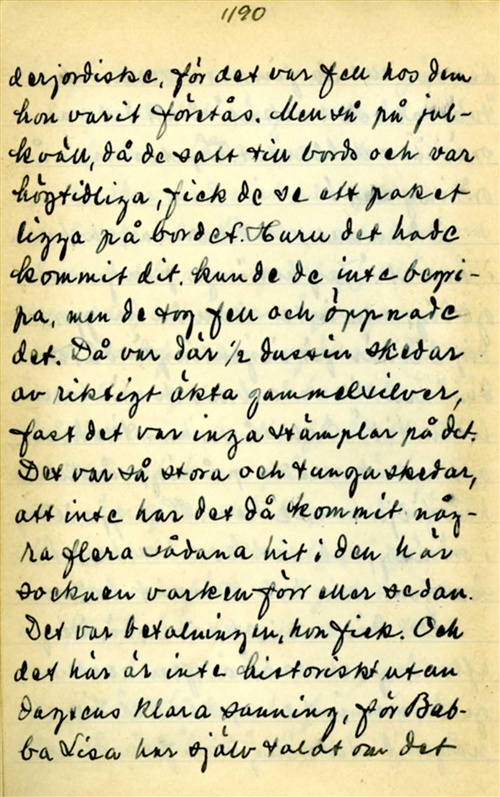 1190
derjordiske, för det var fell hos dem
hon varit företås. Men så på jul-
kväll, då de satt till bords och var
högtidliga, fick de se ett paket
ligga på bordet. Huru det hade
kommit dit, kunde de inte begri-
pa, men de tog fell och öppnade
det. Då var där 1/2 dussin skedar
av riktigt äkta gammelsilver,
fast det var inga stämplar på det.
Det var så stora och tunga skedar,
att inte har det då kommit någ-
ra flera sådana hit i den här
socknen varken förr eller sedan.
Det var betalningen, hon fick. Och
det här är inte historiskt utan
dagsens klara sanning, för Bab-
ba Lisa har själv talat om det